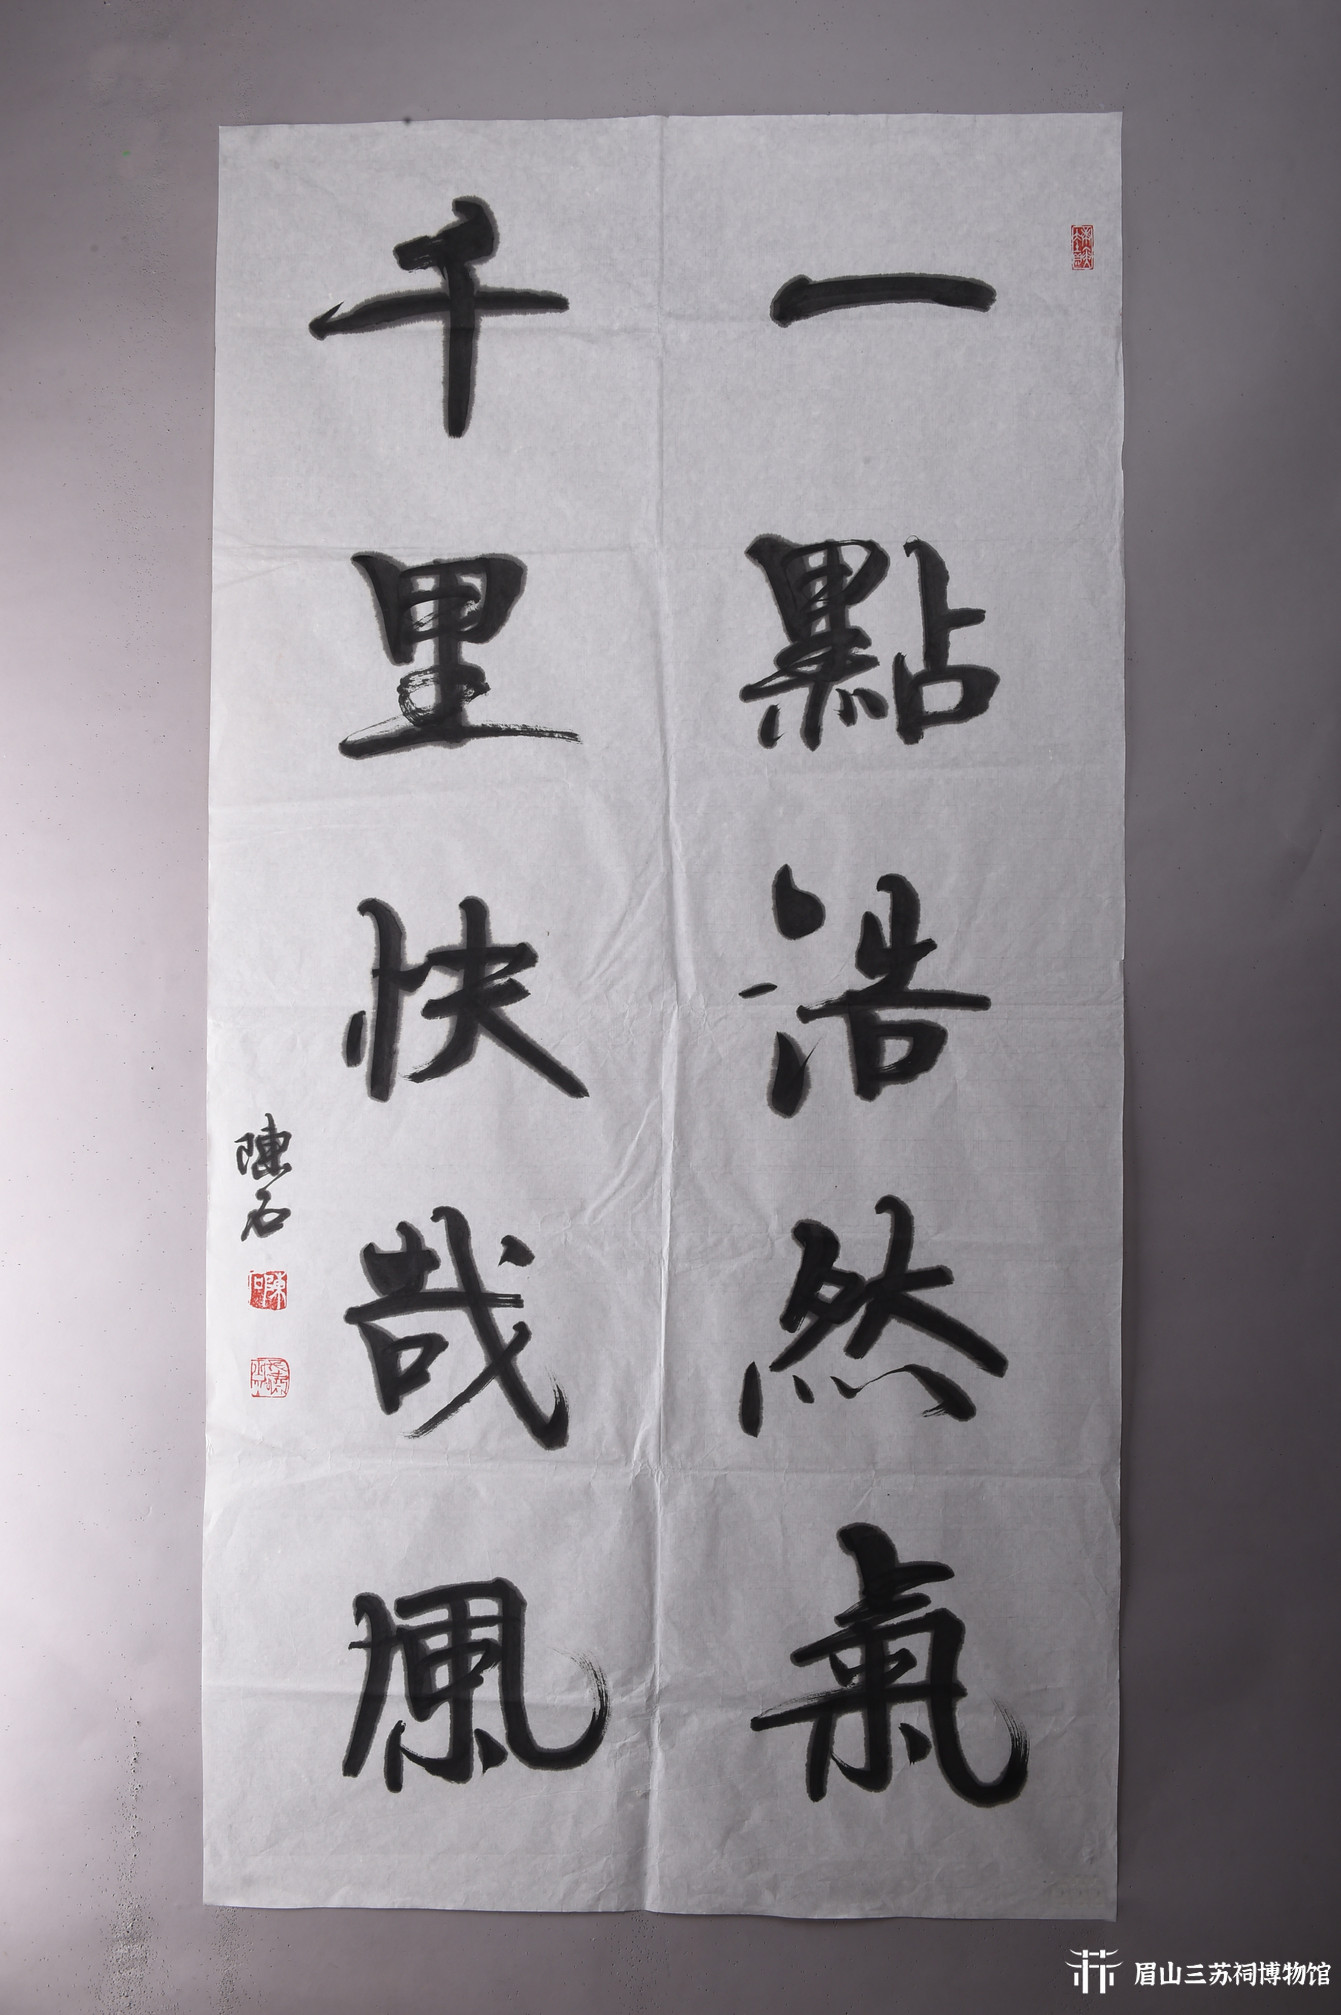 一點浩然氣
千里快哉風
陳石
眉山三苏祠博物馆